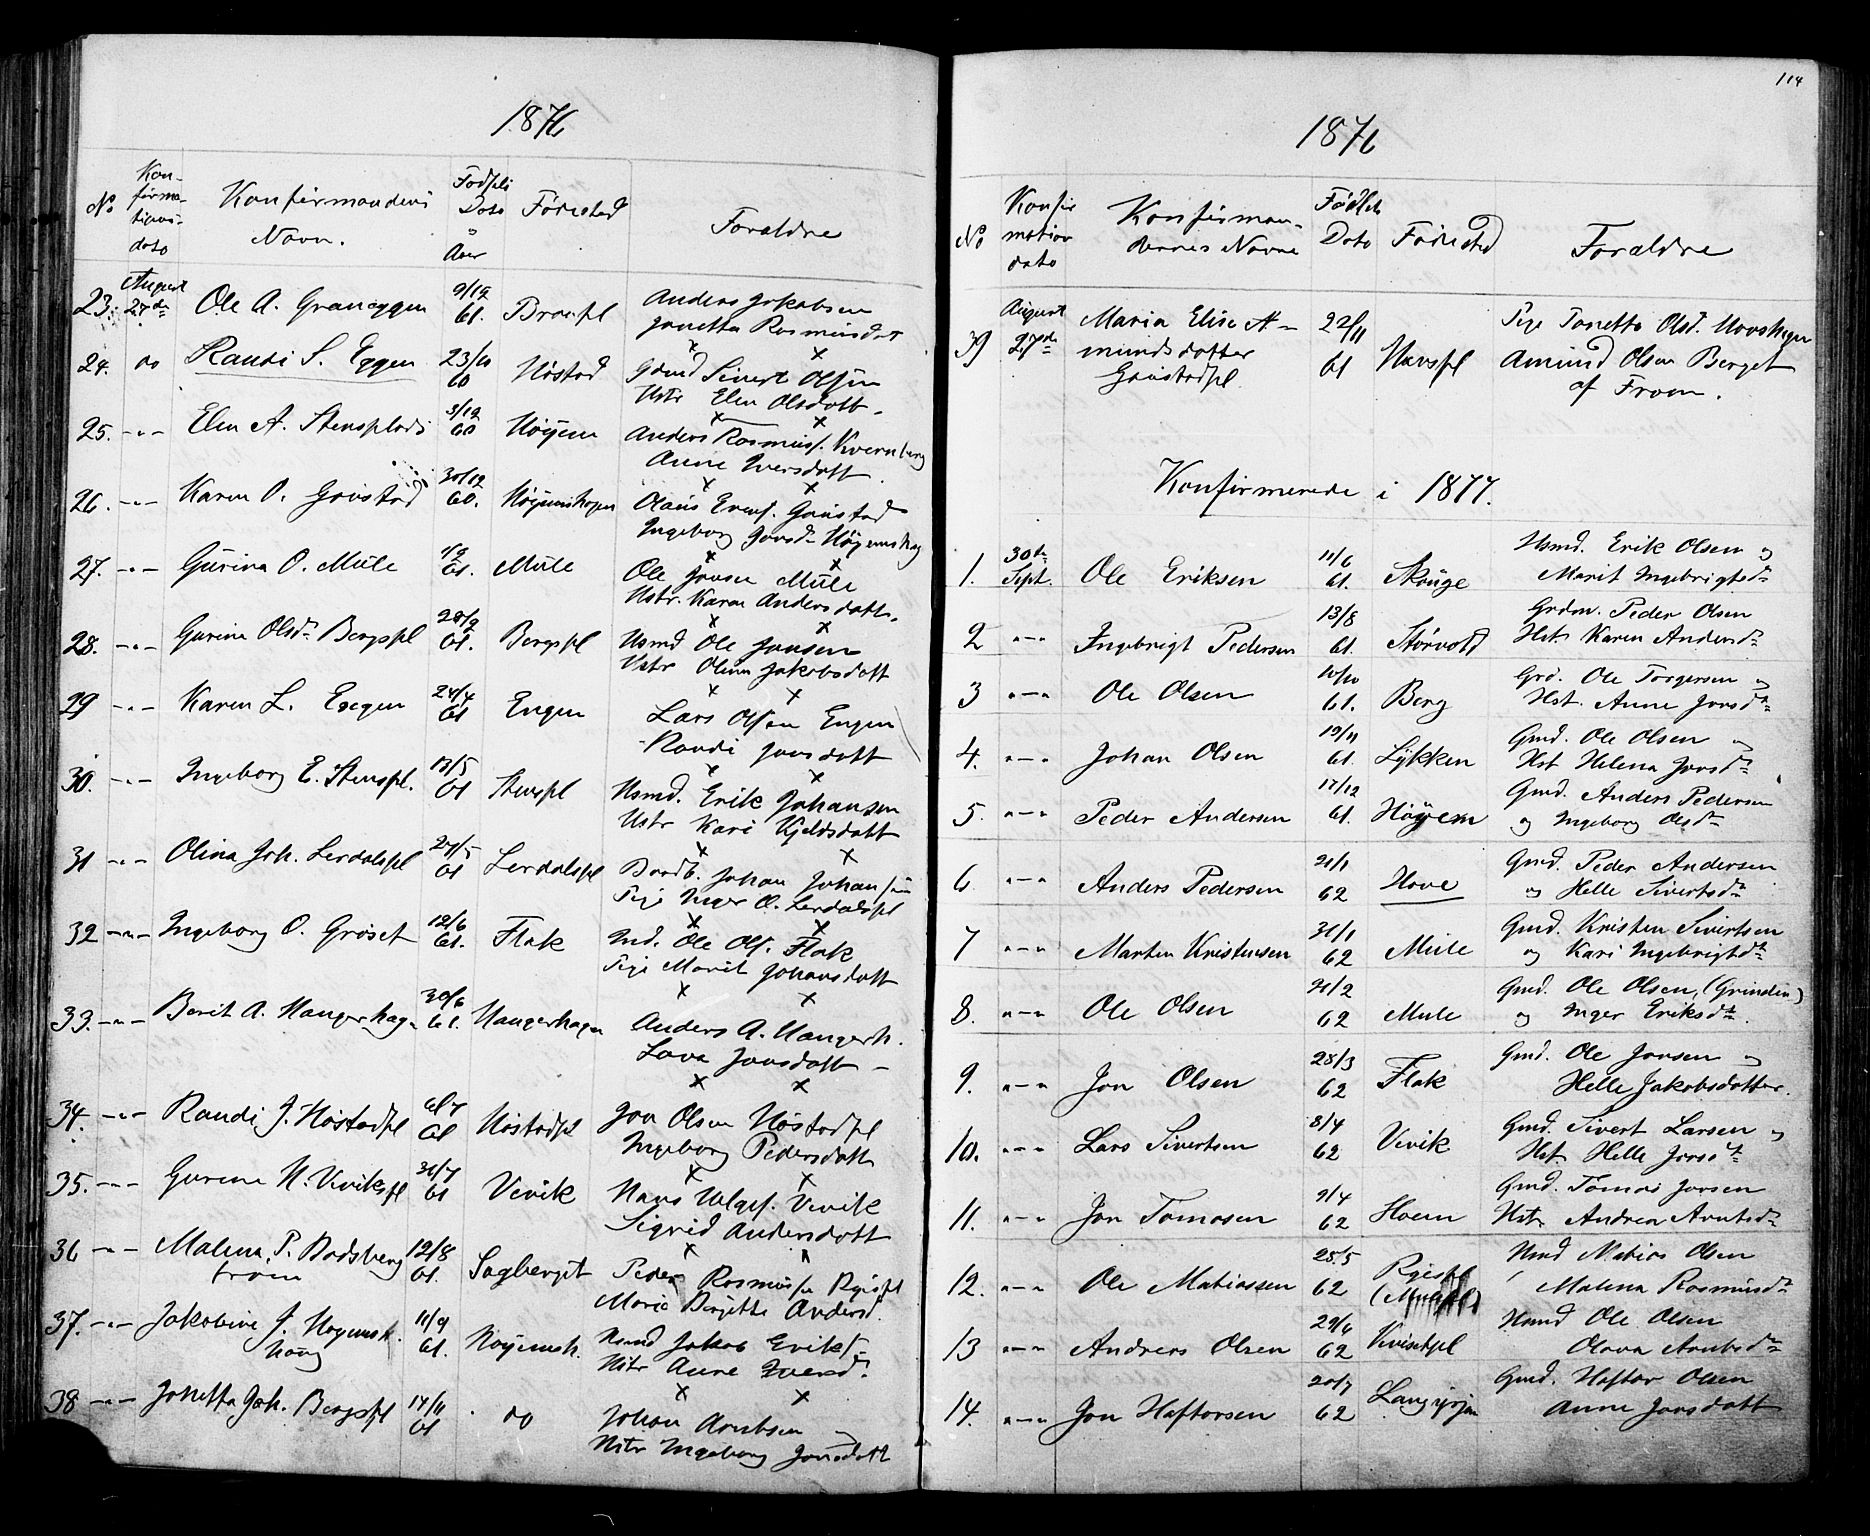 1876
No
Kon-
firma-
tions-
dato
Konfirmandens
Navn.
Fødsels
Dato
&
Aar
Fødested
Foraldre
23. August 27de Ole A. Graneggen 9/12 61. Braapl Anders Jakobsen
Jonetta Rasmusdat
24. do Randi S. Eggen 23/10 60 Høstad Gdmd Sivert Olsen
Hstr Elen Olsdatt.
25. -"- Elen A. Stensplads 3/12 60 Høyem Anders Rasmusf. Kvernberg
Anne Iversdatt.
26. -"- Karen O. Gaustad 30/12 60. Høyumshagen Olaus Evenf. Gaustad
Ingeborg Jonsd. Høyemshag
27. -"- Gurina O. Mule 1/2 61. Mule Ole Jonsen Mule
Hstr. Karen Andersdatt.
28. -"- Gurine Olsdr Bergspl 28/2 61. Bergspl Husmd Ole Jonsen
Hstr Oline Jakobsdatt
29 -"- Karen L. Engen 24/4 61 Engen Lars Olsen Engen
Randi Jonsdatt
30. -"- Ingeborg E. Stenspl. 13/5 61 Stenspl Husmd. Erik Johansen
Hstr Kari Kjeldsdatt
31 -"- Olina Joh. Lerdalspl 24/5 61 Lerdalspl Johan Johansen
Pige Inger O. Lerdalspl
32 -"- Ingeborg O. Grøset 12/6 61. Flak Ole Olf. Flak
Pige Marit Johansdatt
33. -"- Berit A. Haugerhag 30/6 61. Haugerhagen Anders A. Haugerh.
Lava Jonsdatt
34. -"- Randi J. Høstadpl 61 Høstadpl Jon Olsen Høstadpl
Ingeborg Pedersdatt
35. -"- Gurine H. Vevikspl 31/7 61 Vevik Hans Vevik
Sigrid Andersdatt
36 -"- Malena P. Bodsberg
trøen 12/8 61. Sagberget Peder Rasmusen Ryespl
Marie Birgitte Andersd.
37. -"- Jakobine J. Høyemsh.
haug 11/9 61. Høyemsh. Husmd Jakob Erikf.
Hstr Anne Iversd.
38 -"- Jonetta Joh. Bergspl 14/11 61 do Johan Arntsen
Hstr Ingeborg Jonsdatt
114
1876
No
Konfir
mation
dato
Konfirman-
dernes Navne
Fødsels
Dato
Fødested
Foraldre
39 August 27de Maria Elise A-
mundsdatter
Gaustadpl. 22/11 61 Havspl Pige Jonetta Olsd. Hovshagen
Amund Olsen Berget
af Fraan.
Konfirmerede i 1877.
1. 30te Sept. Ole Eriksen 11/6 61. Skauge Husmd. Erik Olsen og
Marit Ingebrigtsdr
2 -"- Ingebrigt Pedersen 13/8 61. Størvold Grdm. Peder Olsen
Hst. Karen Andersdr
3 -"- Ole Olsen 10/10 61. Berg Grd. Ole Torgersen og
Hst. Anne Jonsdr
4. -"- Johan Olsen 19/11 61. Lykken Gmd. Ole Olsen og
Hst Helena Jonsdr
5. -"- Peder Andersen 17/12 61. Høyem Gmd. Anders Pedersen
og Ingeborg Olsdr
6. -"- Anders Pedersen 21/1 62 Hove Gmd. Peder Andersen
og Helle Sivertsdr
7 -"- Marten Kristensen 31/1 62 Mule Gmd. Kristen Sivertsen
og Kari Ingebrigtdr
8. -"- Ole Olsen 21/2 62 Mule Gmd. Ole Olsen, (Grinden)
og Inger Eriksdr
9. -"- Jon Olsen 28/3 62 Flak Gmd. Ole Jonsen og
Helle Jakobsdatter.
10. -"- Lars Sivertsen 8/4 62 Vevik Gmd. Sivert Larsen og
Hst. Helle Jonsdr
11. -"- Jon Tomasen 9/4 62 Hoem Gmd. Tomas Jonsen
Hstr Andrea Arntsdr
12. -"- Ole Matiassen 25.5 62 Ryespl Husmd Matias Olsen
Malena Rasmusdr
13 -"- Andreas Olsen 29/6 62 Kvisetpl Husmd Ole Olsen
Olava Arntsdr
14. -"- Jon Haftorsen 20/7 62 Gmd. Haftor Olsen
Anne Jonsdatt